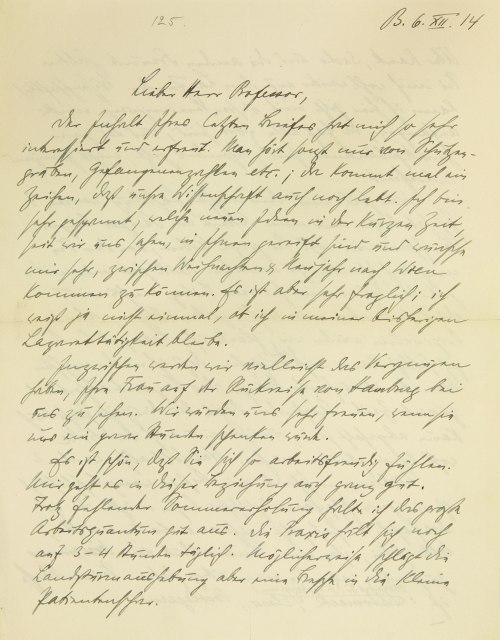 125.
B. 6. XII. 14
Lieber Herr Professor,
Der Inhalt Ihres letzten Briefes hat mich so sehr
interessiert und erfreut. Man hört sonst nur von Schützen-
gräben, Gefangenenzahlen etc.; da kommt mal ein
Zeichen, daß unsre Wissenschaft auch noch lebt. Ich bin
sehr gespannt, welche neuen Ideen in der kurzen Zeit,
seit wir uns sahen, in Ihnen gereift sind und wünsche
mir sehr, zwischen Weihnachten & Neujahr nach Wien
kommen zu können. Es ist aber sehr fraglich; ich
weiß ja nicht einmal, ob ich in meiner bisherigen
Lazarettätigkeit bleibe.
Inzwischen werden wir vielleicht das Vergnügen
haben, Ihre Frau auf der Rückreise von Hamburg bei
uns zu sehen. Wir würden uns sehr freuen, wenn sie
uns ein paar Stunden schenken würde.
Es ist schön, daß Sie sich so arbeitsfreudig fühlen.
Mir geht es in dieser Beziehung auch ganz gut.
Trotz fehlender Sommererholung halte ich das große
Arbeitsquantum gut aus. Die Praxis hält sich noch
auf 3-4 Stunden täglich. Möglicherweise schlägt die
Landsturmaushebung aber eine Bresche in die kleine
Patientenschar.